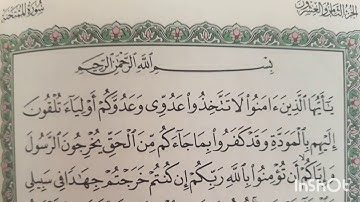 الجزء الثامن والعشرون
سورة الممتحنة
بِسْمِ اللَّهِ الرَّحْمَٰنِ الرَّحِيمِ
يَٰٓأَيُّهَا ٱلَّذِينَ ءَامَنُوا۟ لَا تَتَّخِذُوا۟ عَدُوِّى وَعَدُوَّكُمْ أَوْلِيَآءَ تُلْقُونَ
إِلَيْهِم بِٱلْمَوَدَّةِ وَقَدْ كَفَرُوا۟ بِمَا جَآءَكُم مِّنَ ٱلْحَقِّ يُخْرِجُونَ ٱلرَّسُولَ
وَإِيَّاكُمْ أَن تُؤْمِنُوا۟ بِٱللَّهِ رَبِّكُمْ إِن كُنتُمْ خَرَجْتُمْ جِهَٰدًا فِى سَبِيلِى
InShot